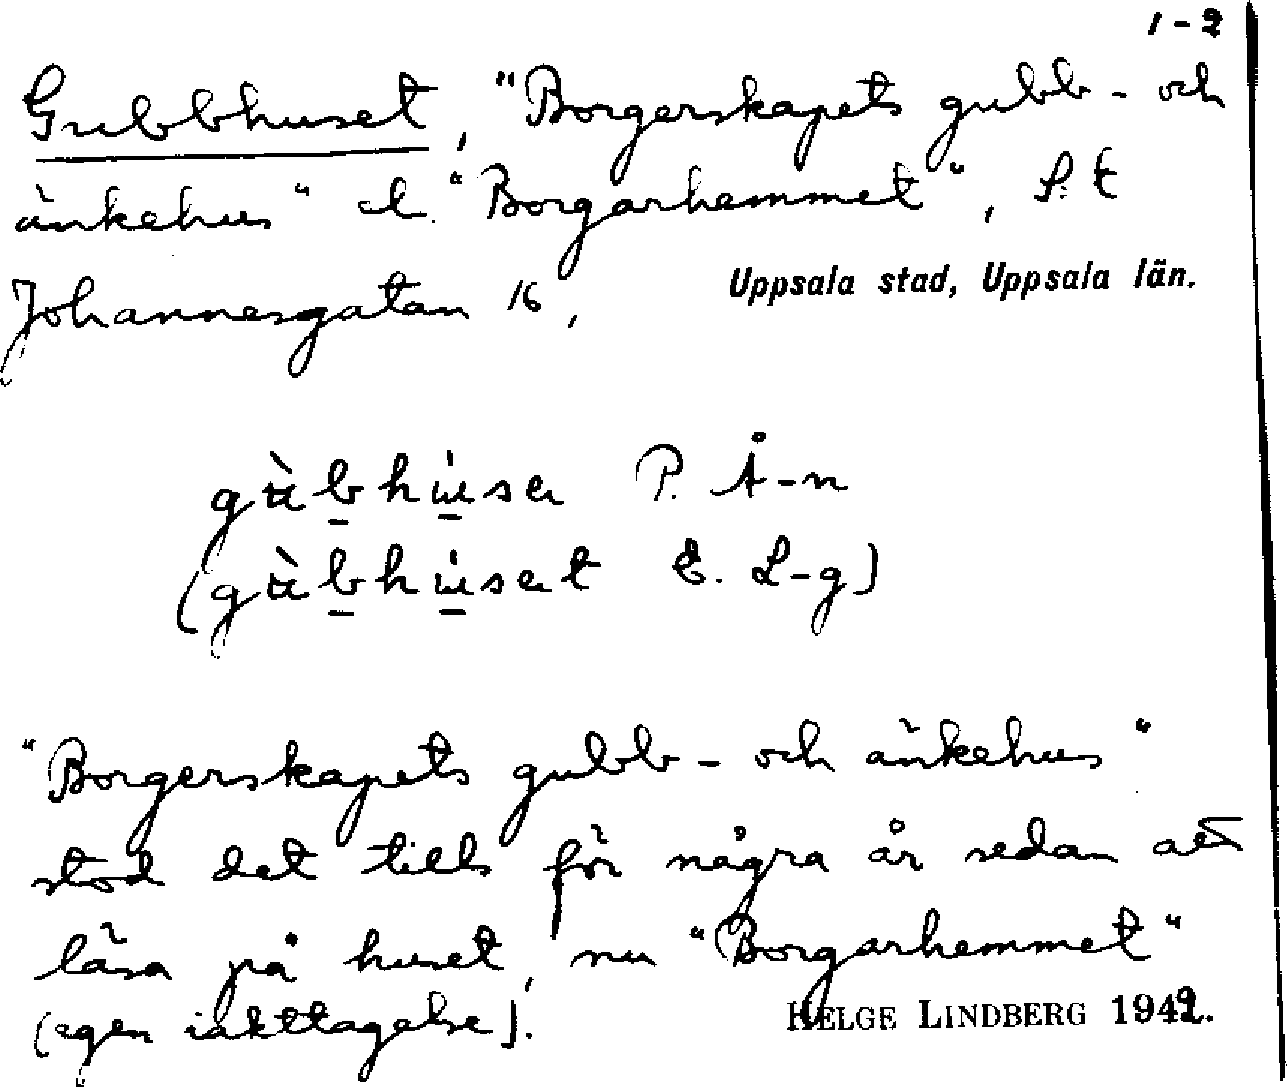 1-2
Gubbhuset, "Borgerskapets gubb- och
änkehus" el. "Borgarhemmet", S:t
Johannesgatan 16,
Uppsala stad, Uppsala län.
P. Å-n
E. L-g)
"Borgerskapets gubb- och änkehus"
stod det tills för några år sedan att
läsa på huset, nu "Borgarhemmet"
(egen iakttagelse).
HELGE LINDBERG 1942.